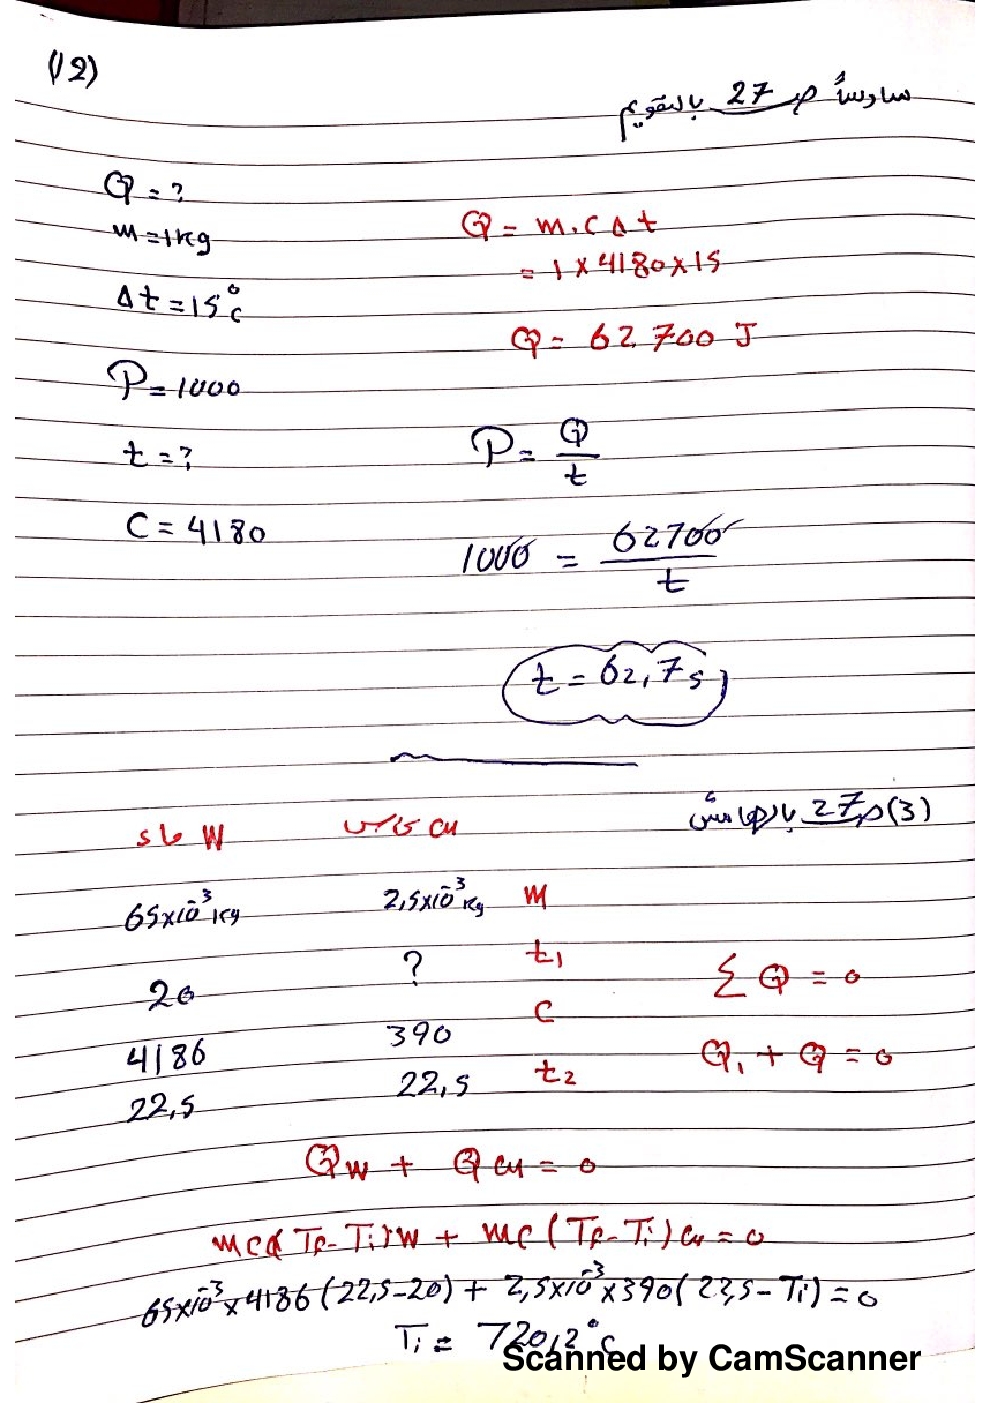 (12)
سادساً ص 27 بالتقويم
Q = ?
m = 1 kg
Δt = 15 °c
P = 1000
t = ?
C = 4180
Q = m.c Δt
= 1 x 4180 x 15
Q = 62 700 J
P = Q/t
1000 = 62700/t
t = 62,7 s
(3) ص 27 بالهامش
W ماء نحاس cu
65x10⁻³ kg 2,5x10⁻³ kg m
20 ? t₁
4186 390 c
22,5 22,5 t₂
Σ Q = 0
Q₁ + Q = 0
Qw + Q cu = 0
mc(Tf - Ti)w + mc(Tf - Ti)cu = 0
65x10⁻³ x 4186 (22,5 - 20) + 2,5x10⁻³ x 390 (22,5 - Ti) = 0
Ti = 720,2 °c
Scanned by CamScanner